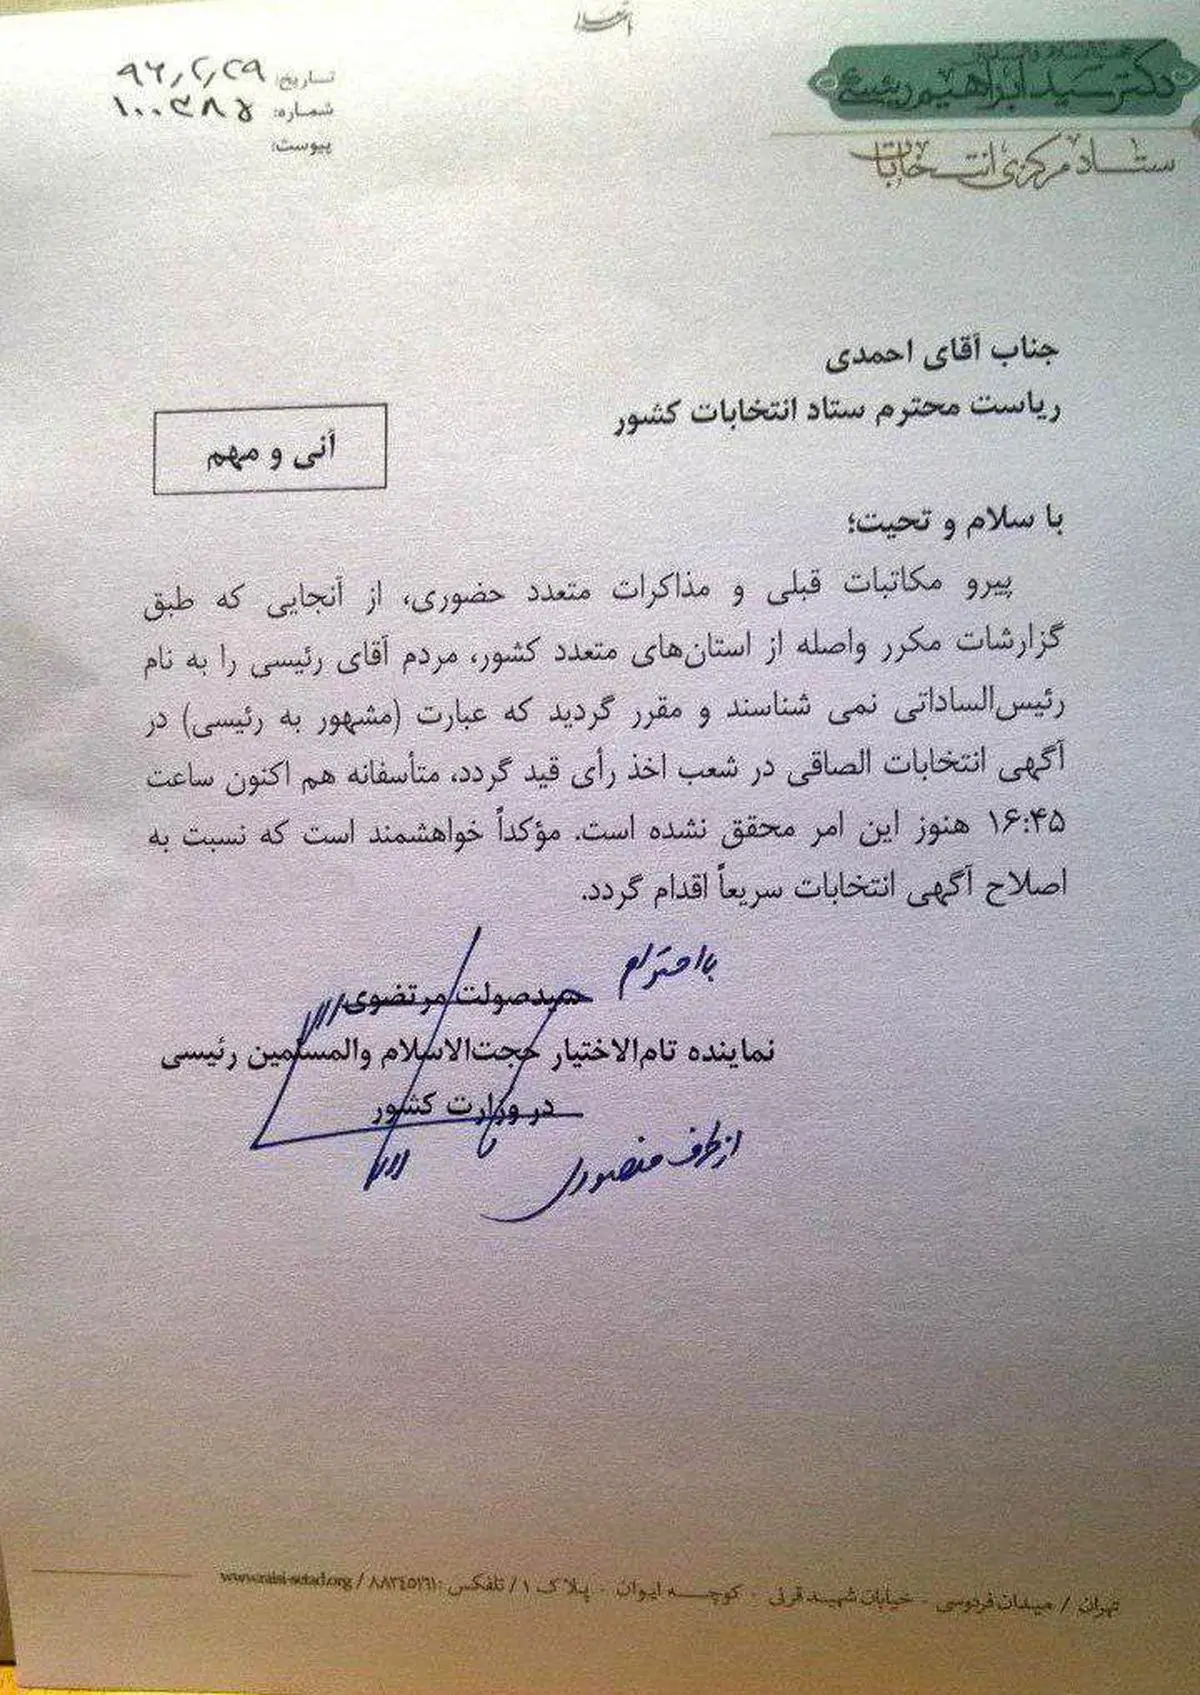 باسمه تعالی
حجت‌الاسلام والمسلمین
دکتر سید ابراهیم رئیسی
ستاد مرکزی انتخابات
تاریخ: ۹۶/۲/۲۹
شماره: ۱۰۰۳۸۵
پیوست:
جناب آقای احمدی
ریاست محترم ستاد انتخابات کشور
آنی و مهم
با سلام و تحیت؛
پیرو مکاتبات قبلی و مذاکرات متعدد حضوری، از آنجایی که طبق
گزارشات مکرر واصله از استان‌های متعدد کشور، مردم آقای رئیسی را به نام
رئیس‌الساداتی نمی شناسند و مقرر گردید که عبارت (مشهور به رئیسی) در
آگهی انتخابات الصاقی در شعب اخذ رأی قید گردد، متأسفانه هم اکنون ساعت
۱۶:۴۵ هنوز این امر محقق نشده است. مؤکداً خواهشمند است که نسبت به
اصلاح آگهی انتخابات سریعاً اقدام گردد.
با احترام
سیدصولت مرتضوی
نماینده تام‌الاختیار حجت‌الاسلام والمسلمین رئیسی
در وزارت کشور
از طرف منصوری
تهران / میدان فردوسی - خیابان شهید قرنی - کوچه ایوان - پلاک ۱ / تلفکس: ۸۸۳۴۵۱۶۱ / www.raisi-setad.org